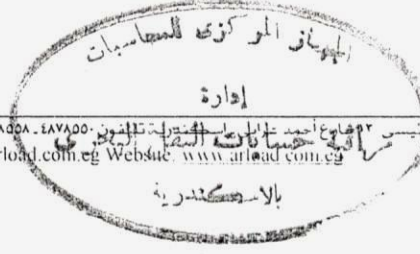 الجهاز المركزى للمحاسبات
إدارة
٣٢ شارع أحمد تليفون ٤٨٧٨٥٥٠
مراقبة حسابات النقل البحرى
arload.com.eg Website: www.arload.com.eg
بالاسكندرية